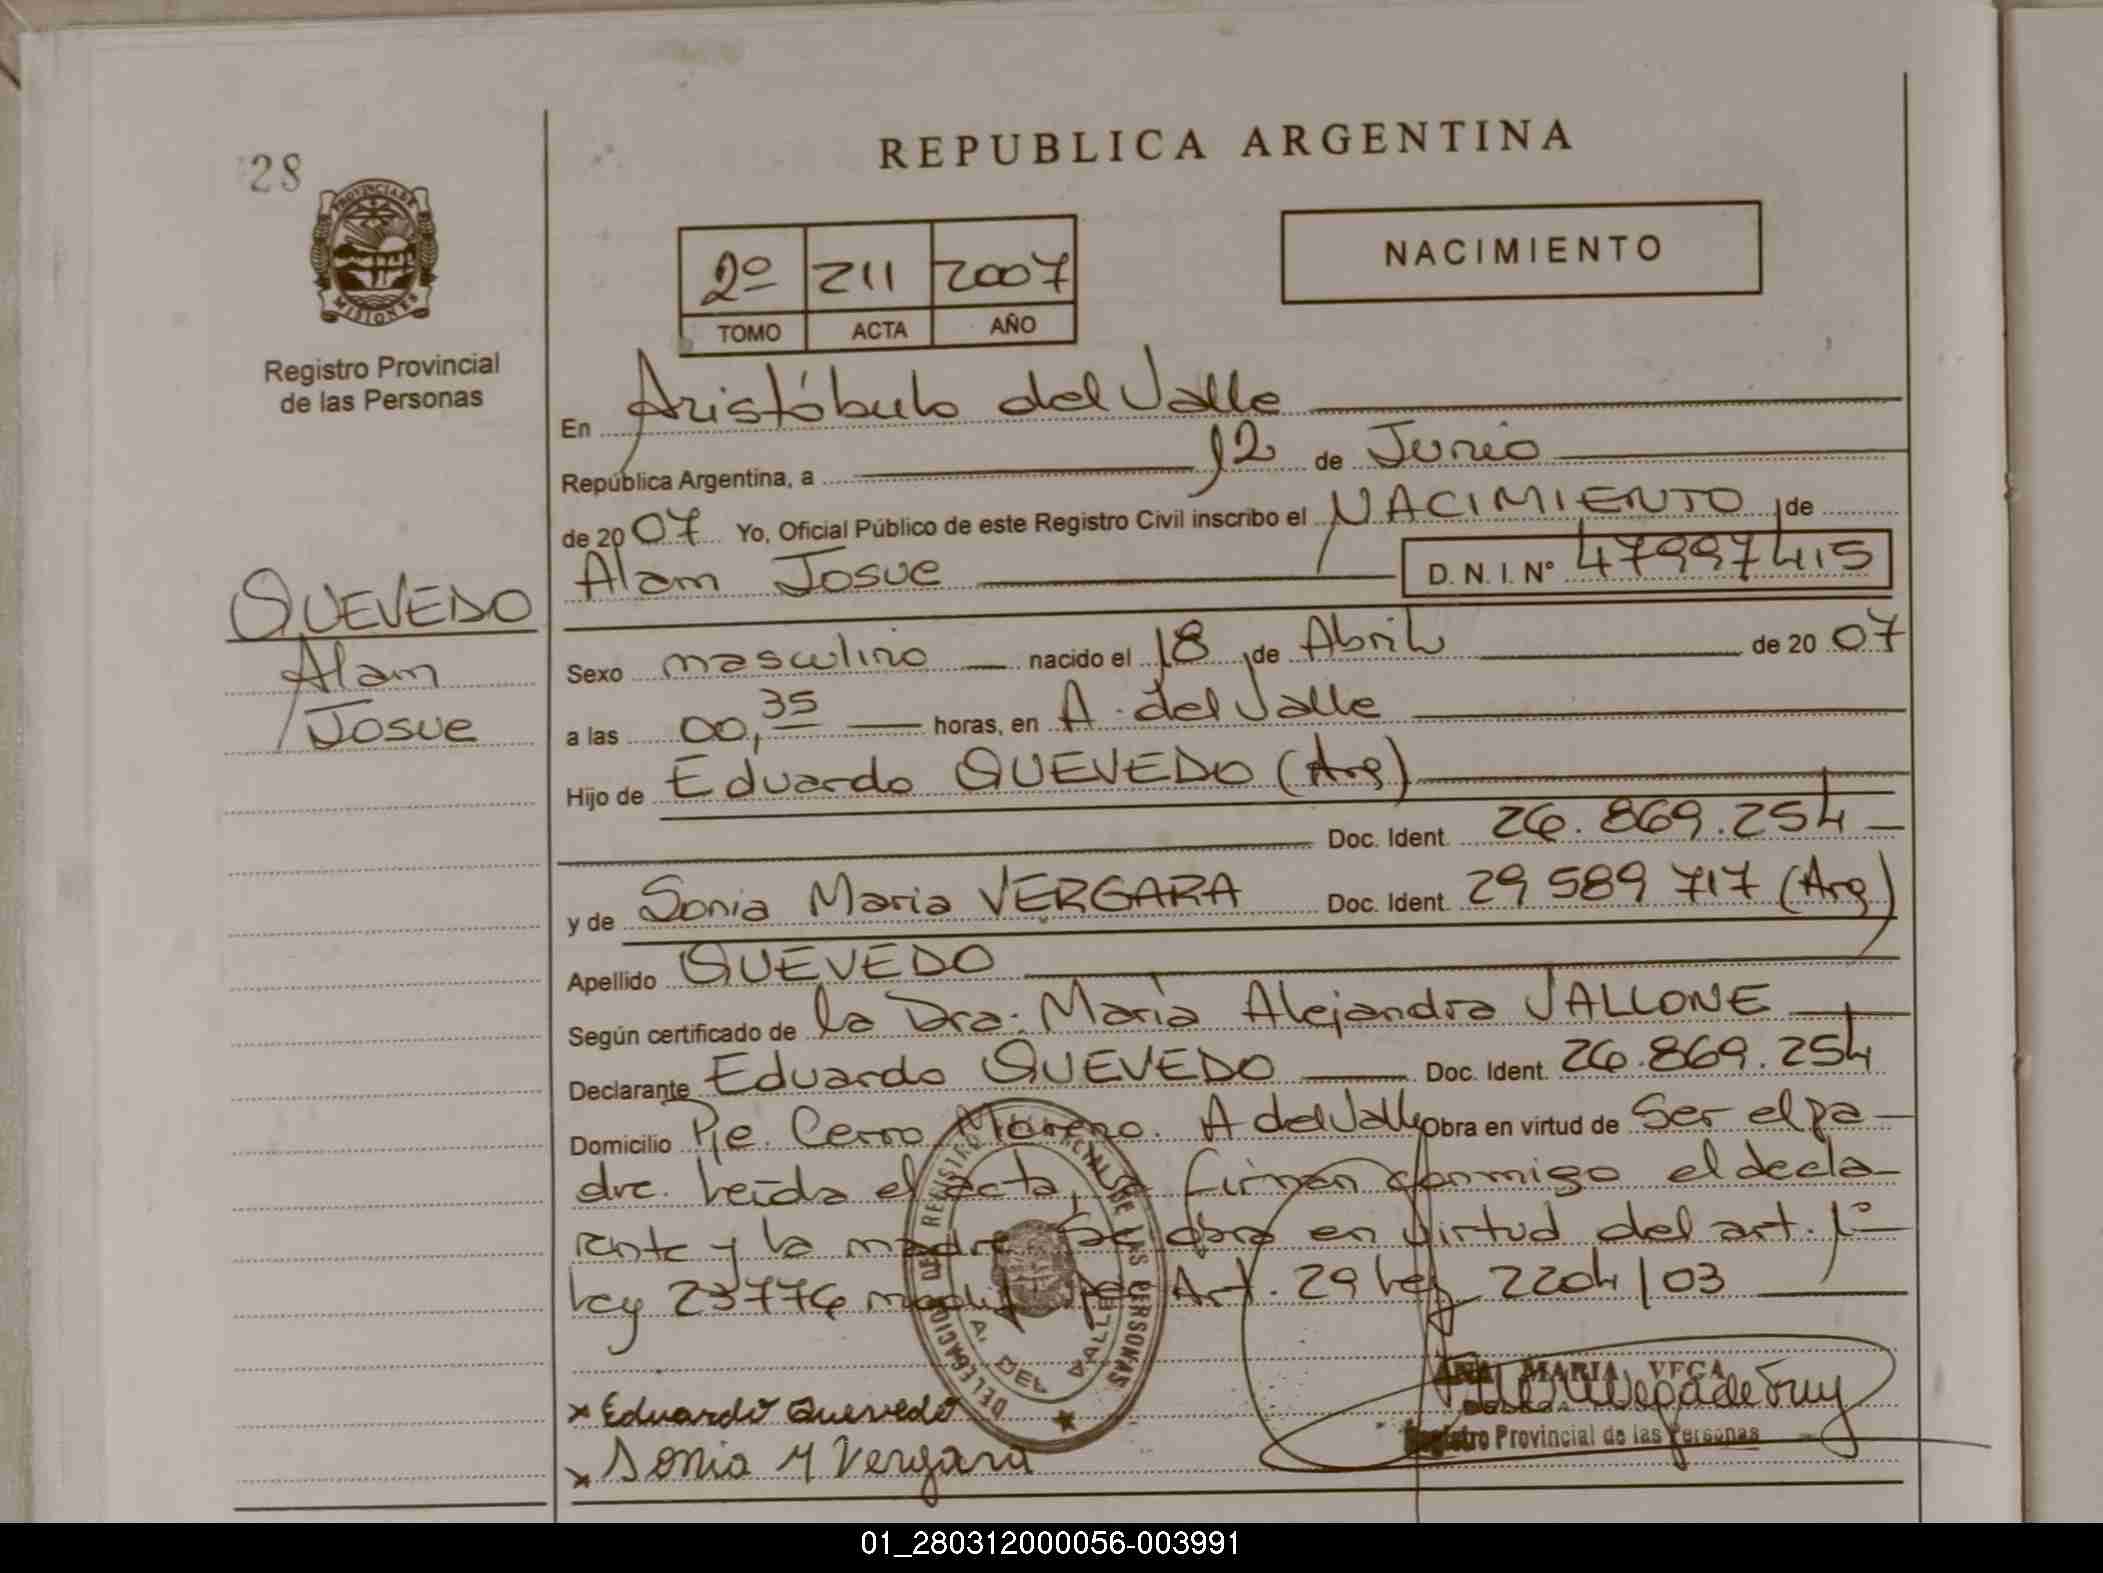 28
PROVINCIA DE
MISIONES
Registro Provincial
de las Personas
QUEVEDO
Alam
Josue
REPUBLICA ARGENTINA
2º 211 2007
TOMO ACTA AÑO
NACIMIENTO
En Aristóbulo del Valle
República Argentina, a 12 de Junio
de 2007 Yo, Oficial Público de este Registro Civil inscribo el NACIMIENTO de
Alam Josue D. N. I. Nº 47997415
Sexo masculino nacido el 18 de Abril de 2007
a las 00,35 horas, en A. del Valle
Hijo de Eduardo QUEVEDO (Arg)
Doc. Ident. 26.869.254
y de Sonia Maria VERGARA Doc. Ident. 29 589 717 (Arg)
Apellido QUEVEDO
Según certificado de la Dra. María Alejandra VALLONE
Declarante Eduardo QUEVEDO Doc. Ident. 26.869.254
Domicilio Pje. Cerro Moreno. A del Valle Obra en virtud de Ser el pa-
dre. Leída el acta, la firman conmigo el decla-
rante y la madre. Se obra en virtud del art. 1º
Ley 23776 modif por Art. 29 Ley 2204/03
DELEGACION DEL REGISTRO PROVINCIAL DE LAS PERSONAS
A. DEL VALLE
x Eduardo Quevedo
x Sonia M Vergara
ANA MARIA VEGA
Registro Provincial de las Personas
01_280312000056-003991